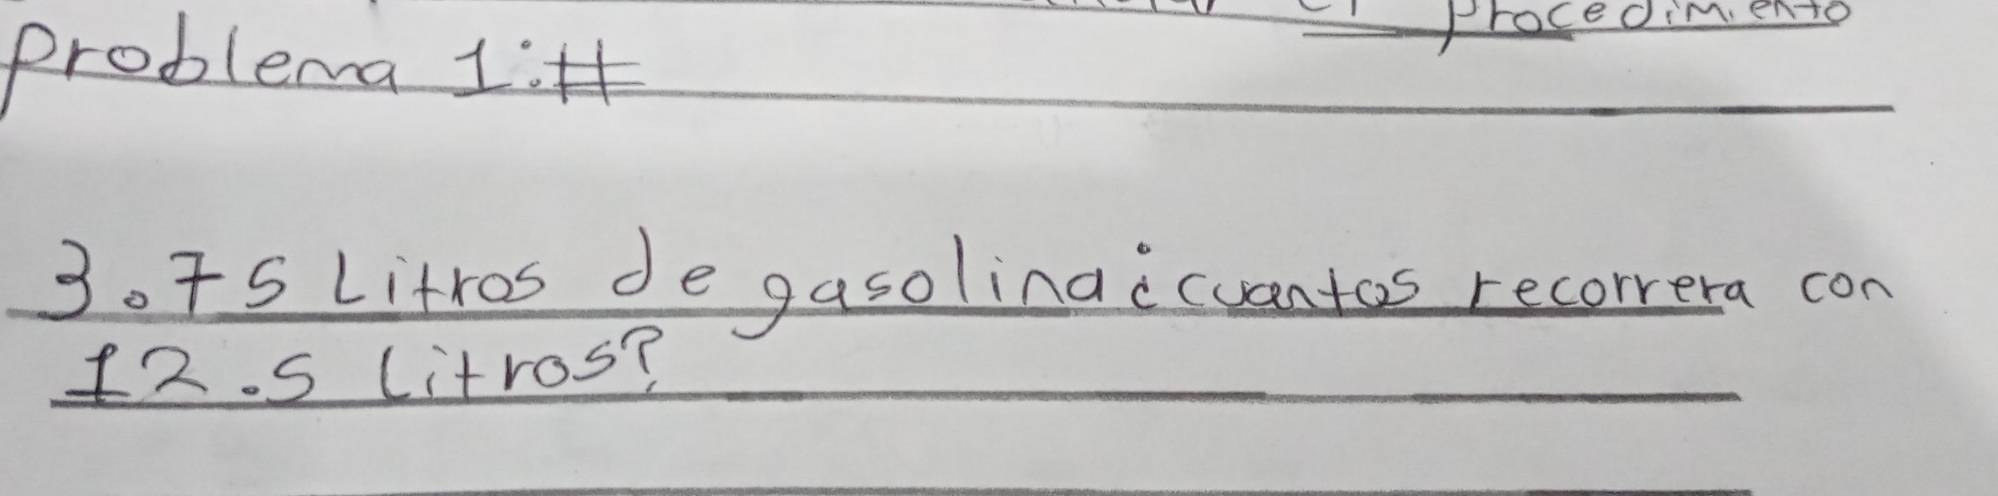 procedimiento
problema 1:#
3.75 Litros de gasolina¿cuantos recorrera con
12.5 Litros?